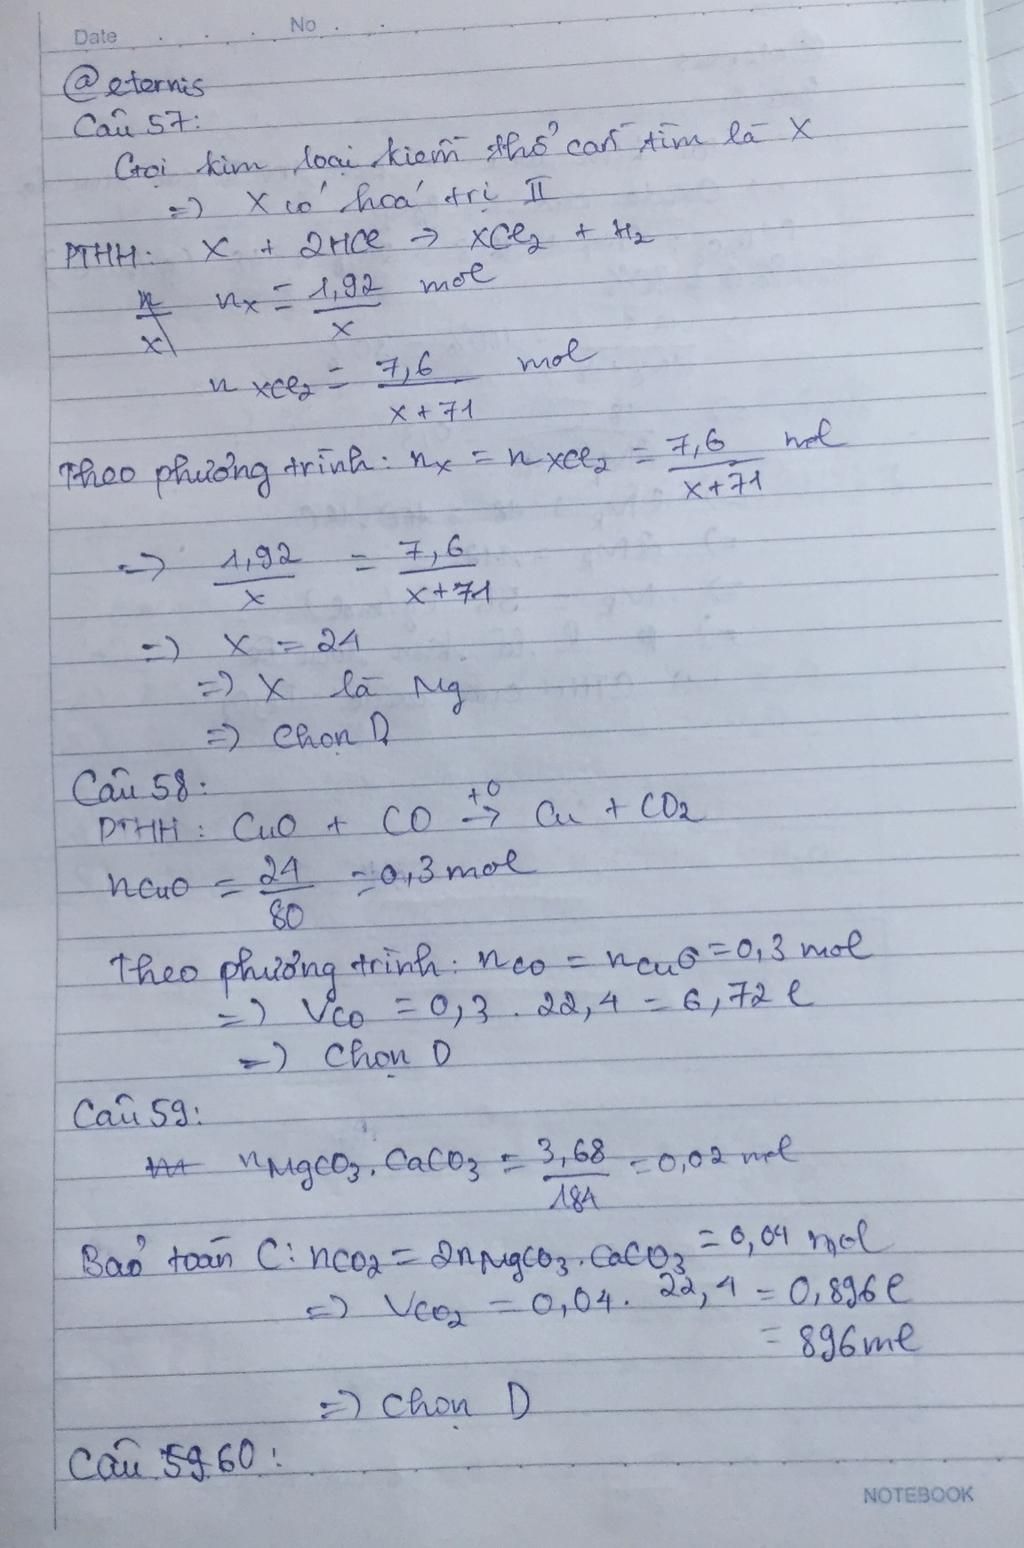 Date No
@eternis
Câu 57:
Gọi kim loại kiềm thổ cần tìm là X
=) X có hoá trị II
PTHH: X + 2HCl → XCl₂ + H₂
n_X = 1,92/X mol
n XCl₂ = 7,6/(X+71) mol
Theo phương trình: n_X = n XCl₂ = 7,6/(X+71) mol
=> 1,92/X = 7,6/(X+71)
=) X = 24
=) X là Mg
=) Chọn D
Câu 58:
PTHH: CuO + CO →(t⁰) Cu + CO₂
n CuO = 24/80 = 0,3 mol
Theo phương trình: n CO = n CuO = 0,3 mol
=) V CO = 0,3 . 22,4 = 6,72 l
=) Chọn D
Câu 59:
n MgCO₃.CaCO₃ = 3,68/184 = 0,02 mol
Bảo toàn C: n CO₂ = 2n MgCO₃.CaCO₃ = 0,04 mol
=) V CO₂ = 0,04. 22,4 = 0,896 l
= 896 ml
=) Chọn D
Câu 59 60:
NOTEBOOK